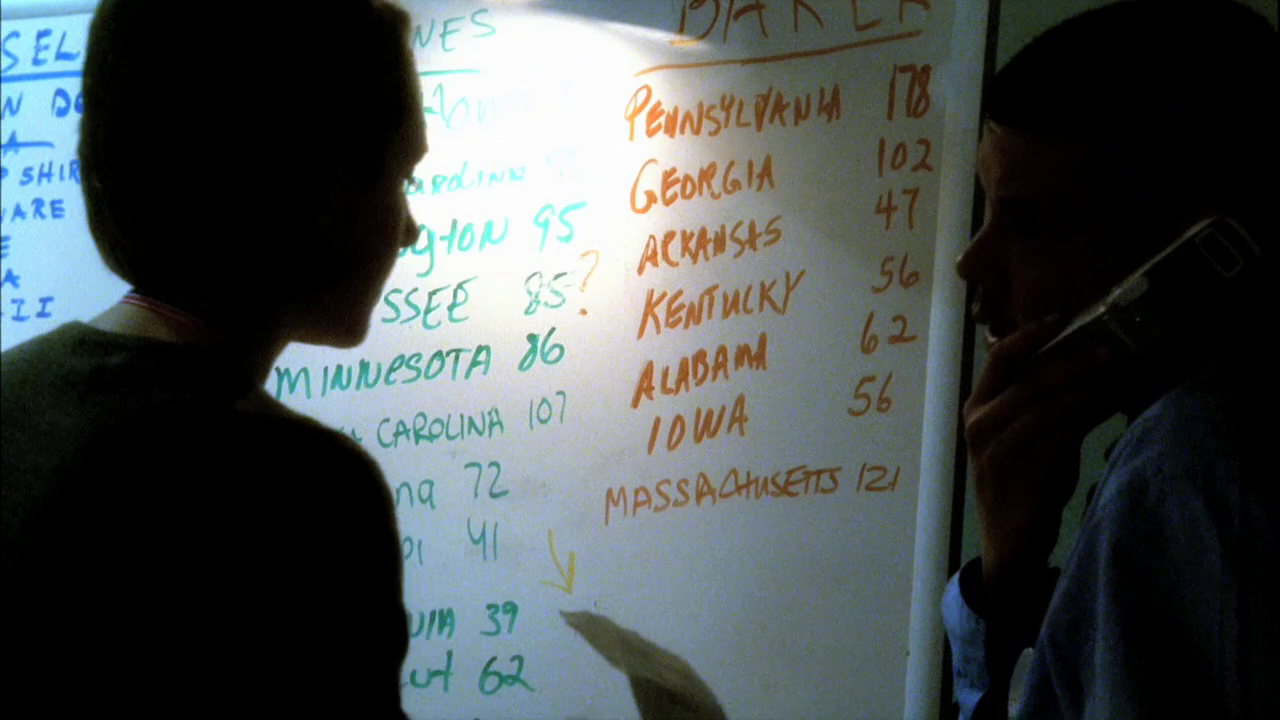 SEL
NES
BAKER
N DO
A
P SHIR
ARE
E
A
II
AROLINA
GTON 95
SSEE 85?
MINNESOTA 86
CAROLINA 107
na 72
PI 41
39
cut 62
PENNSYLVANIA 178
GEORGIA 102
ARKANSAS 47
KENTUCKY 56
ALABAMA 62
IOWA 56
MASSACHUSETTS 121